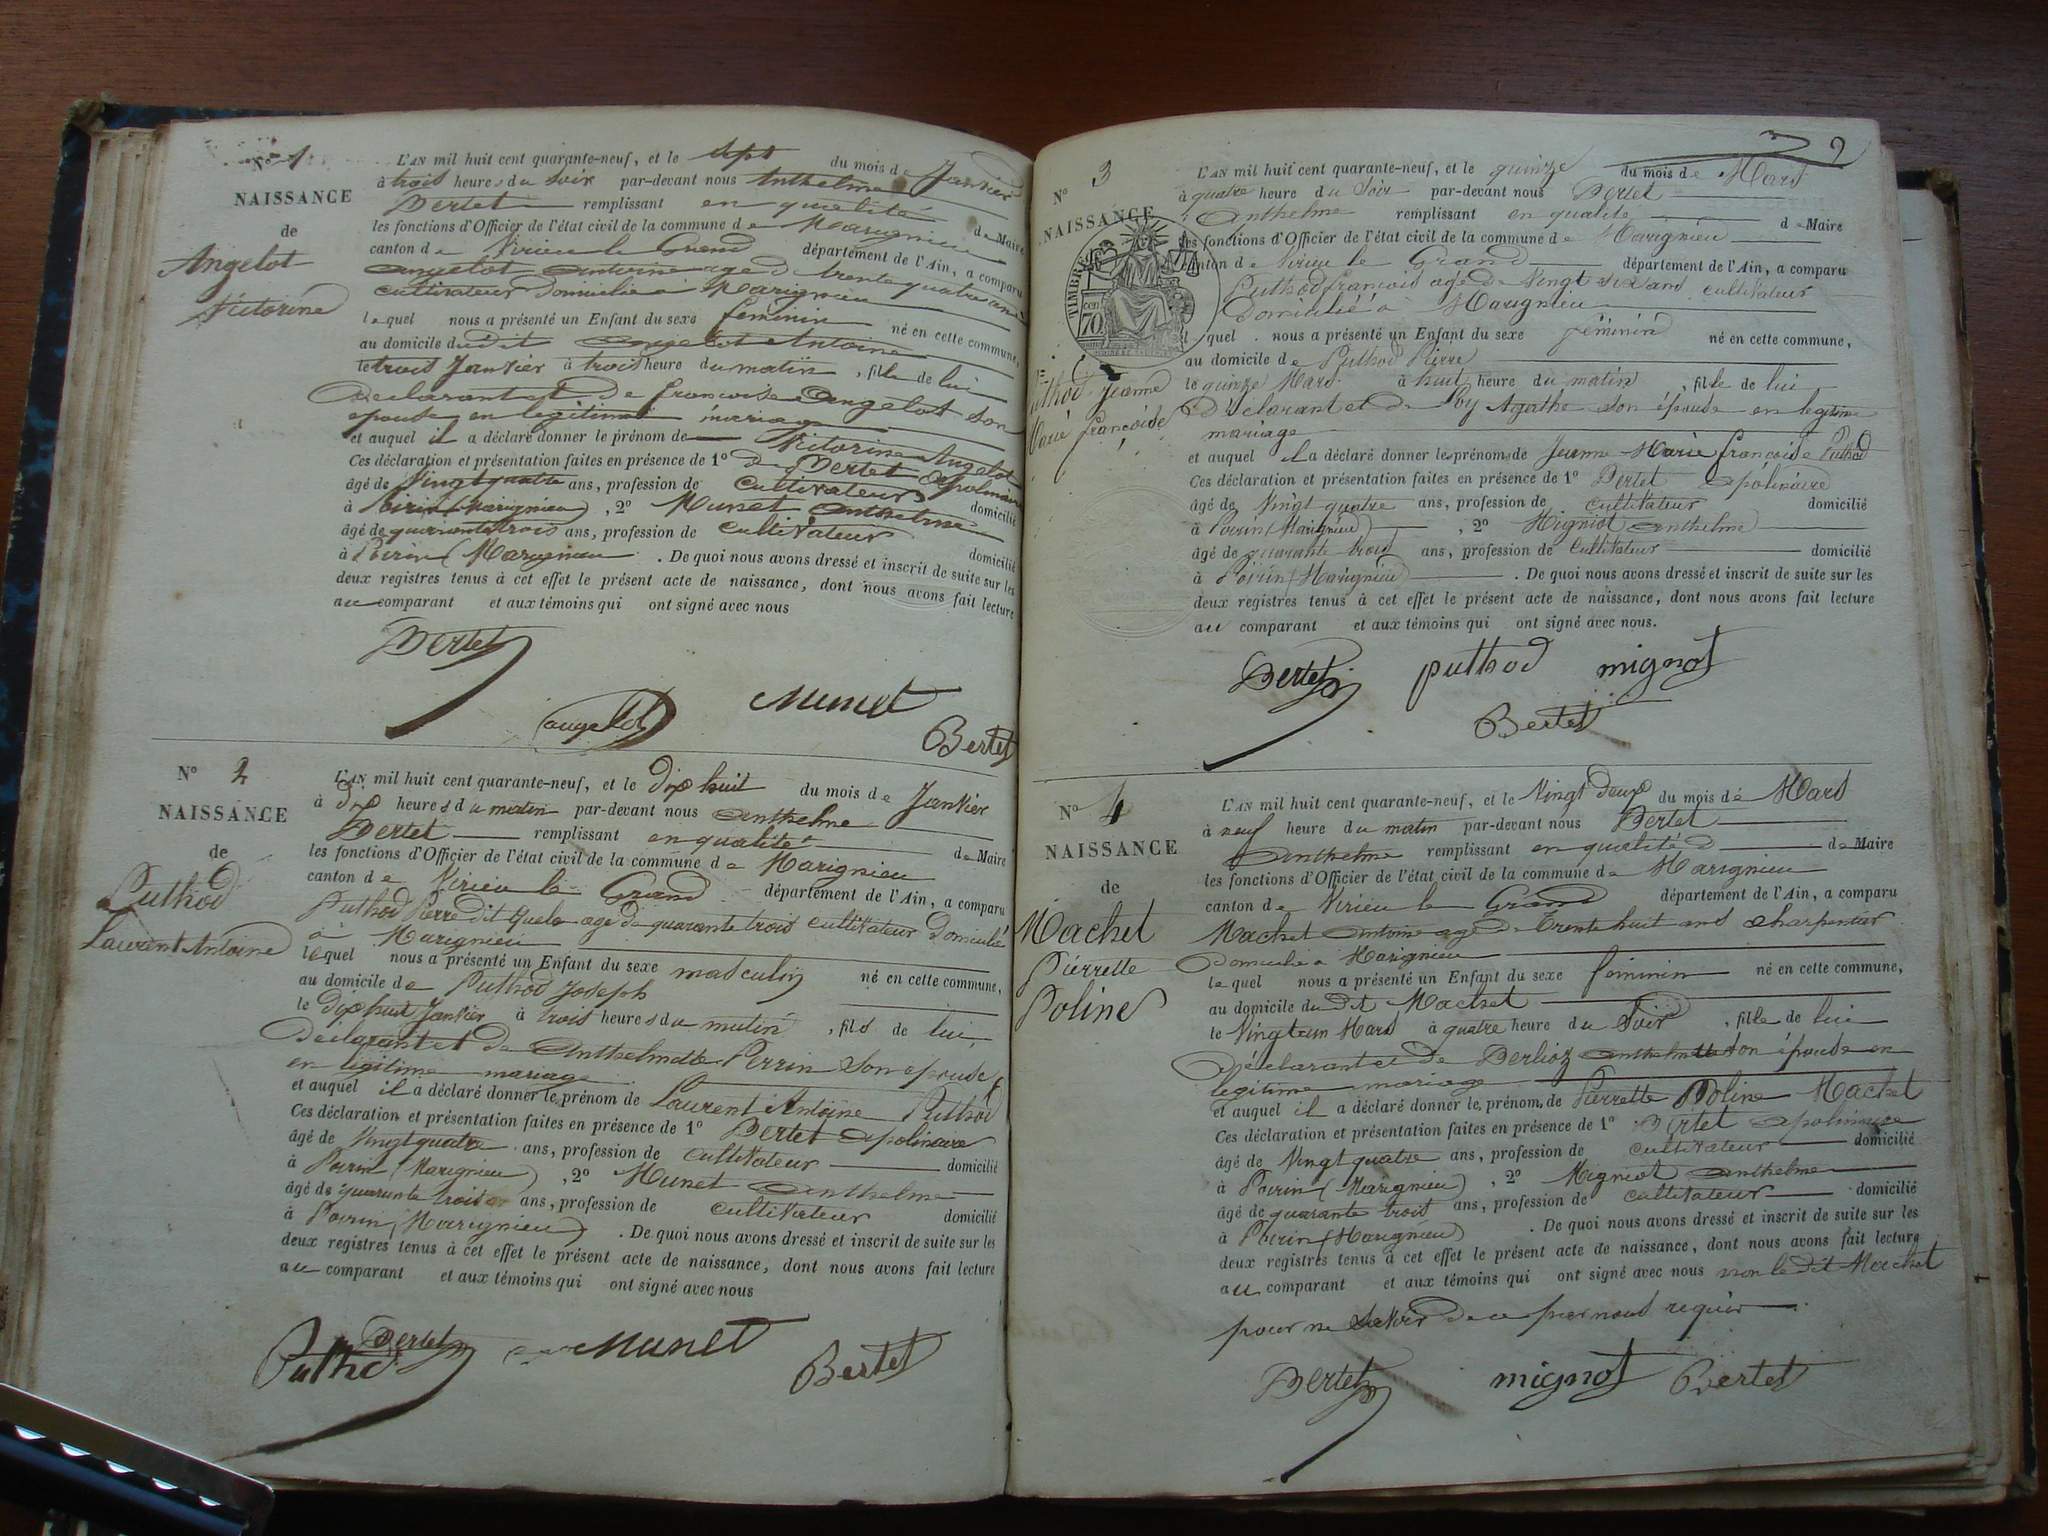 N° 1
NAISSANCE
de
Angelot
Victorine
L'AN mil huit cent quarante-neuf, et le sept du mois de Janvier
à trois heures du soir par-devant nous Anthelme
Bertet remplissant en qualité de Maire
les fonctions d'Officier de l'état civil de la commune de Marignieu
canton de Virieu le Grand département de l'Ain, a comparu
Angelot Antoine age de trente quatre ans
cultivateur domicilié à Marignieu
lequel nous a présenté un Enfant du sexe féminin né en cette commune,
au domicile dudit Angelot Antoine
le trois Janvier à trois heure du matin, fille de lui
Déclarant et de francoise Angelot son
epouse en legitime mariage
et auquel il a déclaré donner le prénom de Victorine Angelot
Ces déclaration et présentation faites en présence de 1° Bertet Apolinaire
âgé de Vingt quatre ans, profession de cultivateur domicilié
à Poirin (Marignieu), 2° Munet Anthelme
âgé de quarante trois ans, profession de cultivateur domicilié
à Poirin (Marignieu . De quoi nous avons dressé et inscrit de suite sur les
deux registres tenus à cet effet le présent acte de naissance, dont nous avons fait lecture
au comparant et aux témoins qui ont signé avec nous
Bertet
Munet
angelot
Bertet
N° 2
NAISSANCE
de
Puthod
Laurent Antoine
L'AN mil huit cent quarante-neuf, et le dix huit du mois de Janvier
à dix heures du matin par-devant nous Anthelme
Bertet remplissant en qualité de Maire
les fonctions d'Officier de l'état civil de la commune de Marignieu
canton de Virieu le Grand département de l'Ain, a comparu
Puthod Pierre dit age de quarante trois cultivateur Domicilié
à Marignieu
lequel nous a présenté un Enfant du sexe masculin né en cette commune,
au domicile de Puthod Joseph
le dix huit Janvier à trois heures du matin, fils de lui
Déclarant et de Anthelmette Perrin son épouse
en légitime mariage
et auquel il a déclaré donner les prénom de Laurent Antoine Puthod
Ces déclaration et présentation faites en présence de 1° Bertet Apolinaire
âgé de Vingt quatre ans, profession de cultivateur domicilié
à Poirin (Marignieu), 2° Munet Anthelme
âgé de quarante trois ans, profession de cultivateur domicilié
à Poirin (Marignieu) . De quoi nous avons dressé et inscrit de suite sur les
deux registres tenus à cet effet le présent acte de naissance, dont nous avons fait lecture
au comparant et aux témoins qui ont signé avec nous
Bertet
Puthod Munet
Bertet
2
N° 3
NAISSANCE
TIMBRE
70
Puthod Jeanne
Marie Françoise
L'AN mil huit cent quarante-neuf, et le quinze du mois de Mars
à quatre heure du soir par-devant nous Bertet
Anthelme remplissant en qualité de Maire
les fonctions d'Officier de l'état civil de la commune de Marignieu
canton de Virieu le Grand département de l'Ain, a comparu
Puthod francois agé de Vingt six ans cultivateur
Domicilié à Marignieu
lequel nous a présenté un Enfant du sexe féminin né en cette commune,
au domicile de Puthod Pierre
le quinze Mars à huit heure du matin, fille de lui
Déclarant et de Agathe son épouse en legitime
mariage
et auquel il a déclaré donner les prénom de Jeanne Marie françoise Puthod
Ces déclaration et présentation faites en présence de 1° Bertet Apolinaire
âgé de Vingt quatre ans, profession de cultivateur domicilié
à Poirin (Marignieu), 2° Migniot Anthelme
âgé de quarante trois ans, profession de cultivateur domicilié
à Poirin (Marignieu) . De quoi nous avons dressé et inscrit de suite sur les
deux registres tenus à cet effet le présent acte de naissance, dont nous avons fait lecture
au comparant et aux témoins qui ont signé avec nous.
Bertet puthod mignot
Bertet
N° 4
NAISSANCE
de
Machet
Pierrette
Poline
L'AN mil huit cent quarante-neuf, et le Vingt deux du mois de Mars
à neuf heure du matin par-devant nous Bertet
Anthelme remplissant en qualité d de Maire
les fonctions d'Officier de l'état civil de la commune de Marignieu
canton de Virieu le Grand département de l'Ain, a comparu
Machet Antoine age de Trente huit ans charpentier
domicilie a Marignieu
lequel nous a présenté un Enfant du sexe feminin né en cette commune,
au domicile dudit Machet
le Vingt un Mars à quatre heure du Soir, fille de lui
Déclarant et de Berlioz Anthelmette son épouse en
legitime mariage
et auquel il a déclaré donner les prénom de Pierrette Poline Machet
Ces déclaration et présentation faites en présence de 1° Bertet Apolinaire
âgé de Vingt quatre ans, profession de cultivateur domicilié
à Poirin (Marignieu), 2° Migniot Anthelme
âgé de quarante trois ans, profession de cultivateur domicilié
à Poirin (Marignieu) . De quoi nous avons dressé et inscrit de suite sur les
deux registres tenus à cet effet le présent acte de naissance, dont nous avons fait lecture
au comparant et aux témoins qui ont signé avec nous non le dit Machet
pour ne savoir de ce par nous requis
Bertet mignot Bertet